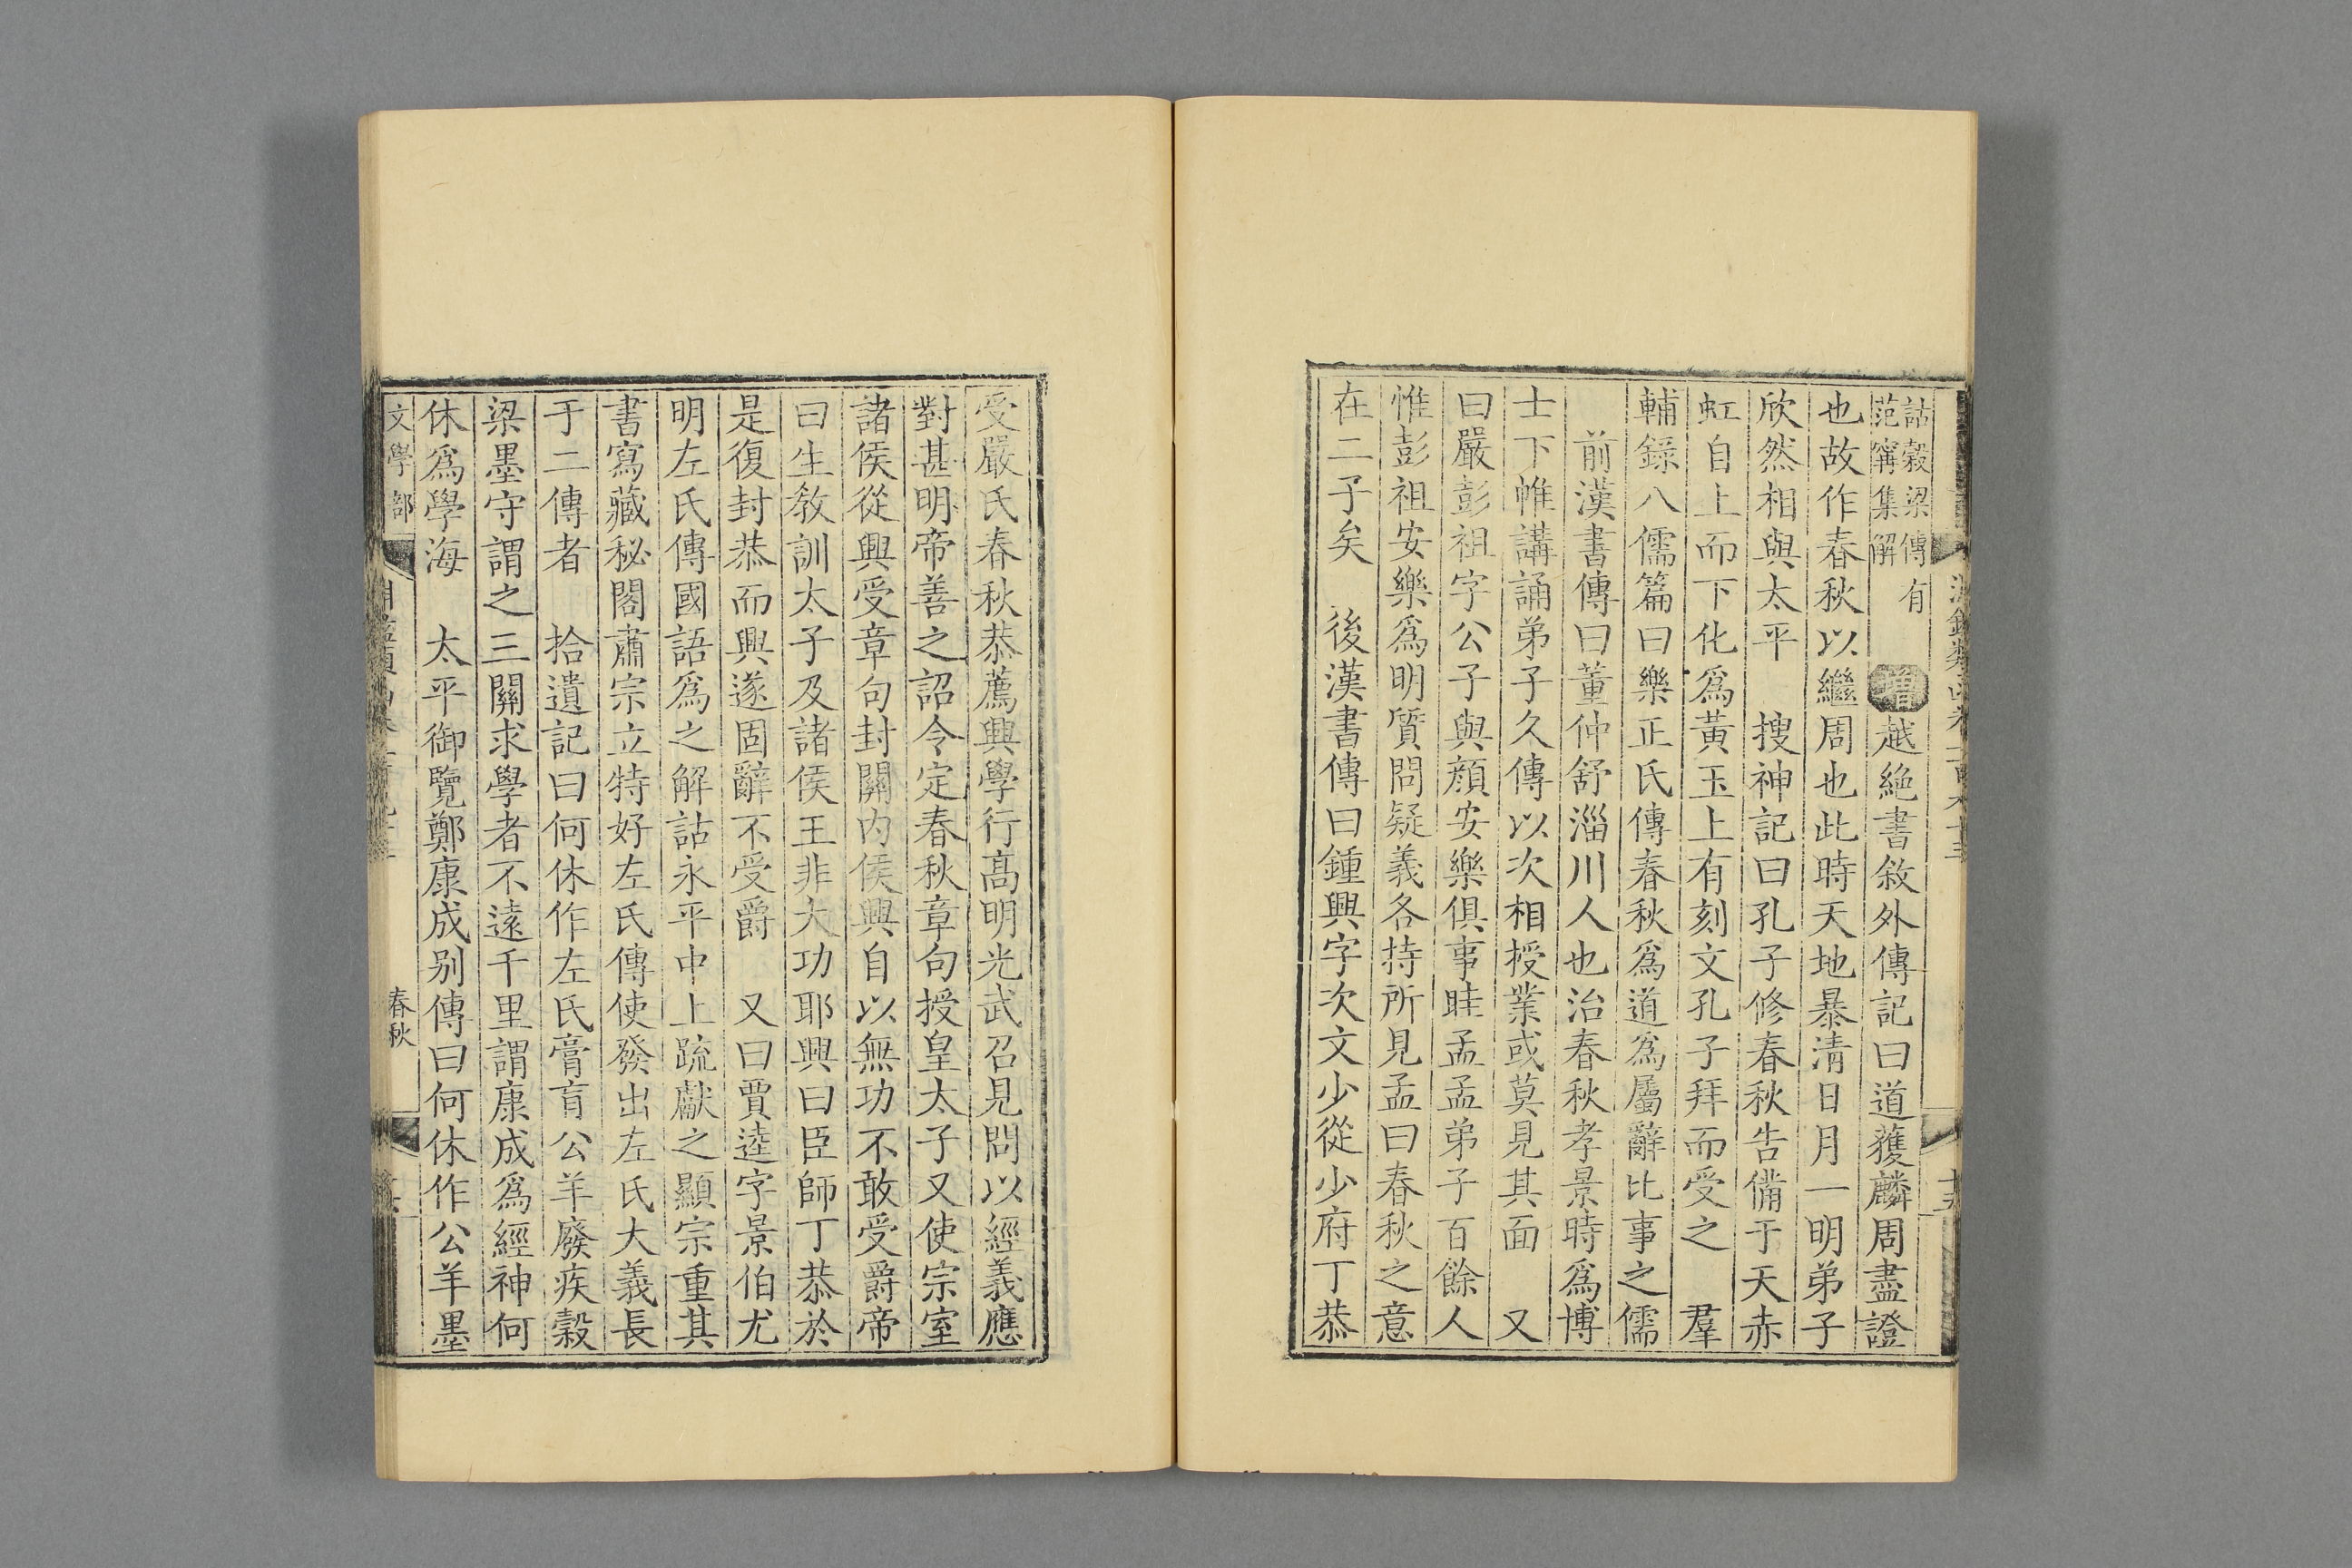 詁穀梁傳有
范甯集解
增越絶書敘外傳記曰道獲麟周盡證
也故作春秋以繼周也此時天地暴清日月一明弟子
欣然相與太平　搜神記曰孔子修春秋告備于天赤
虹自上而下化爲黃玉上有刻文孔子拜而受之　羣
輔錄八儒篇曰樂正氏傳春秋爲道爲屬辭比事之儒
前漢書傳曰董仲舒淄川人也治春秋孝景時爲博
士下帷講誦弟子久傳以次相授業或莫見其面　又
曰嚴彭祖字公子與顔安樂俱事眭孟孟弟子百餘人
惟彭祖安樂爲明質問疑義各持所見孟曰春秋之意
在二子矣　後漢書傳曰鍾興字次文少從少府丁恭
受嚴氏春秋恭薦興學行高明光武召見問以經義應
對甚明帝善之詔令定春秋章句授皇太子又使宗室
諸侯從興受章句封關內侯興自以無功不敢受爵帝
曰生教訓太子及諸侯王非大功耶興曰臣師丁恭於
是復封恭而興遂固辭不受爵　又曰賈逵字景伯尤
明左氏傳國語爲之解詁永平中上疏獻之顯宗重其
書寫藏秘閣肅宗立特好左氏傳使發出左氏大義長
于二傳者　拾遺記曰何休作左氏膏肓公羊廢疾穀
梁墨守謂之三闕求學者不遠千里謂康成爲經神何
休爲學海　太平御覽鄭康成别傳曰何休作公羊墨
文學部
春秋